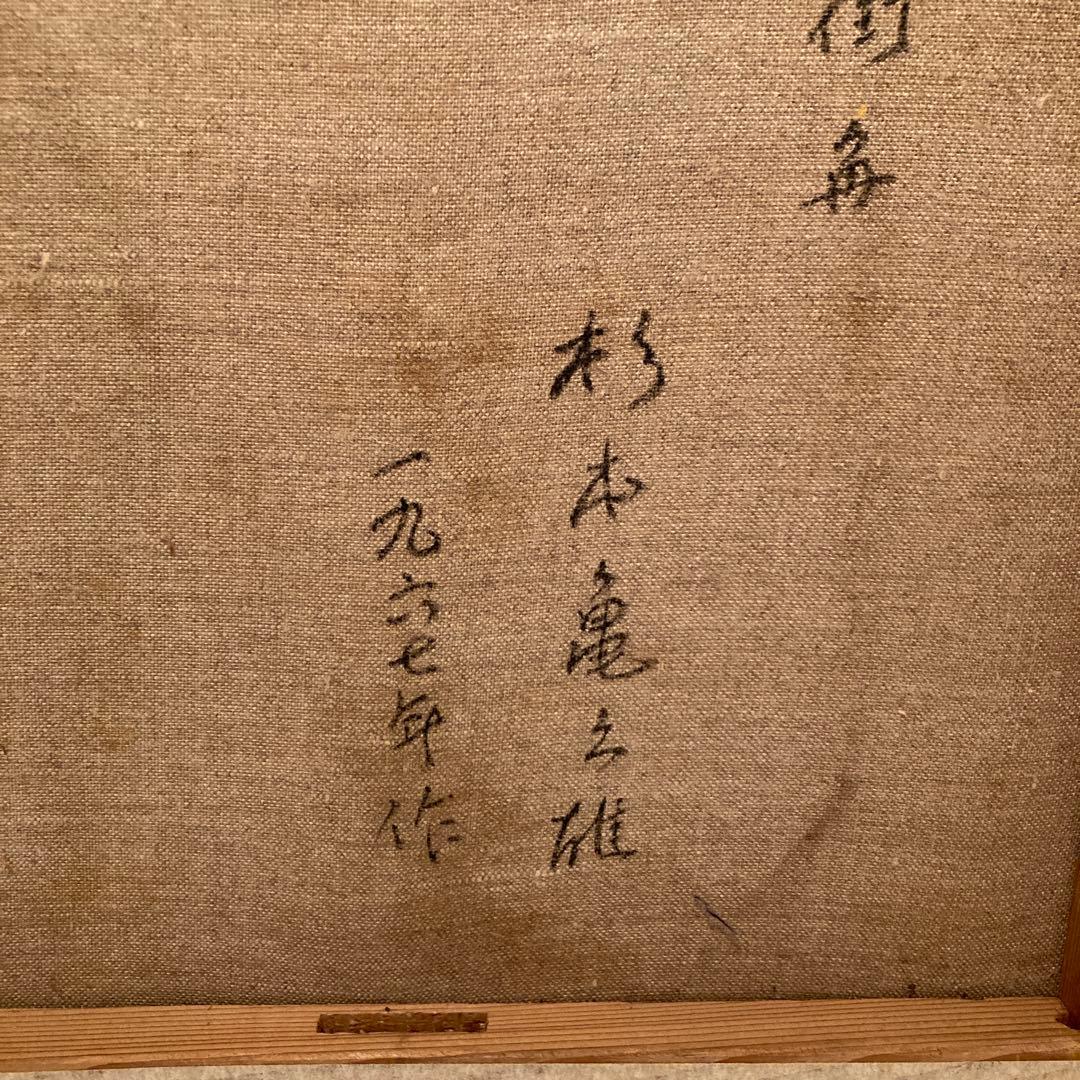 街角
杉本亀久雄
一九六七年作